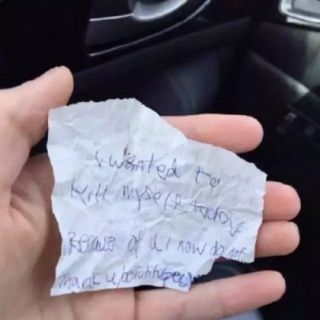 I wanted to
kill myself today
Because of u I now do not
Thank u beautiful